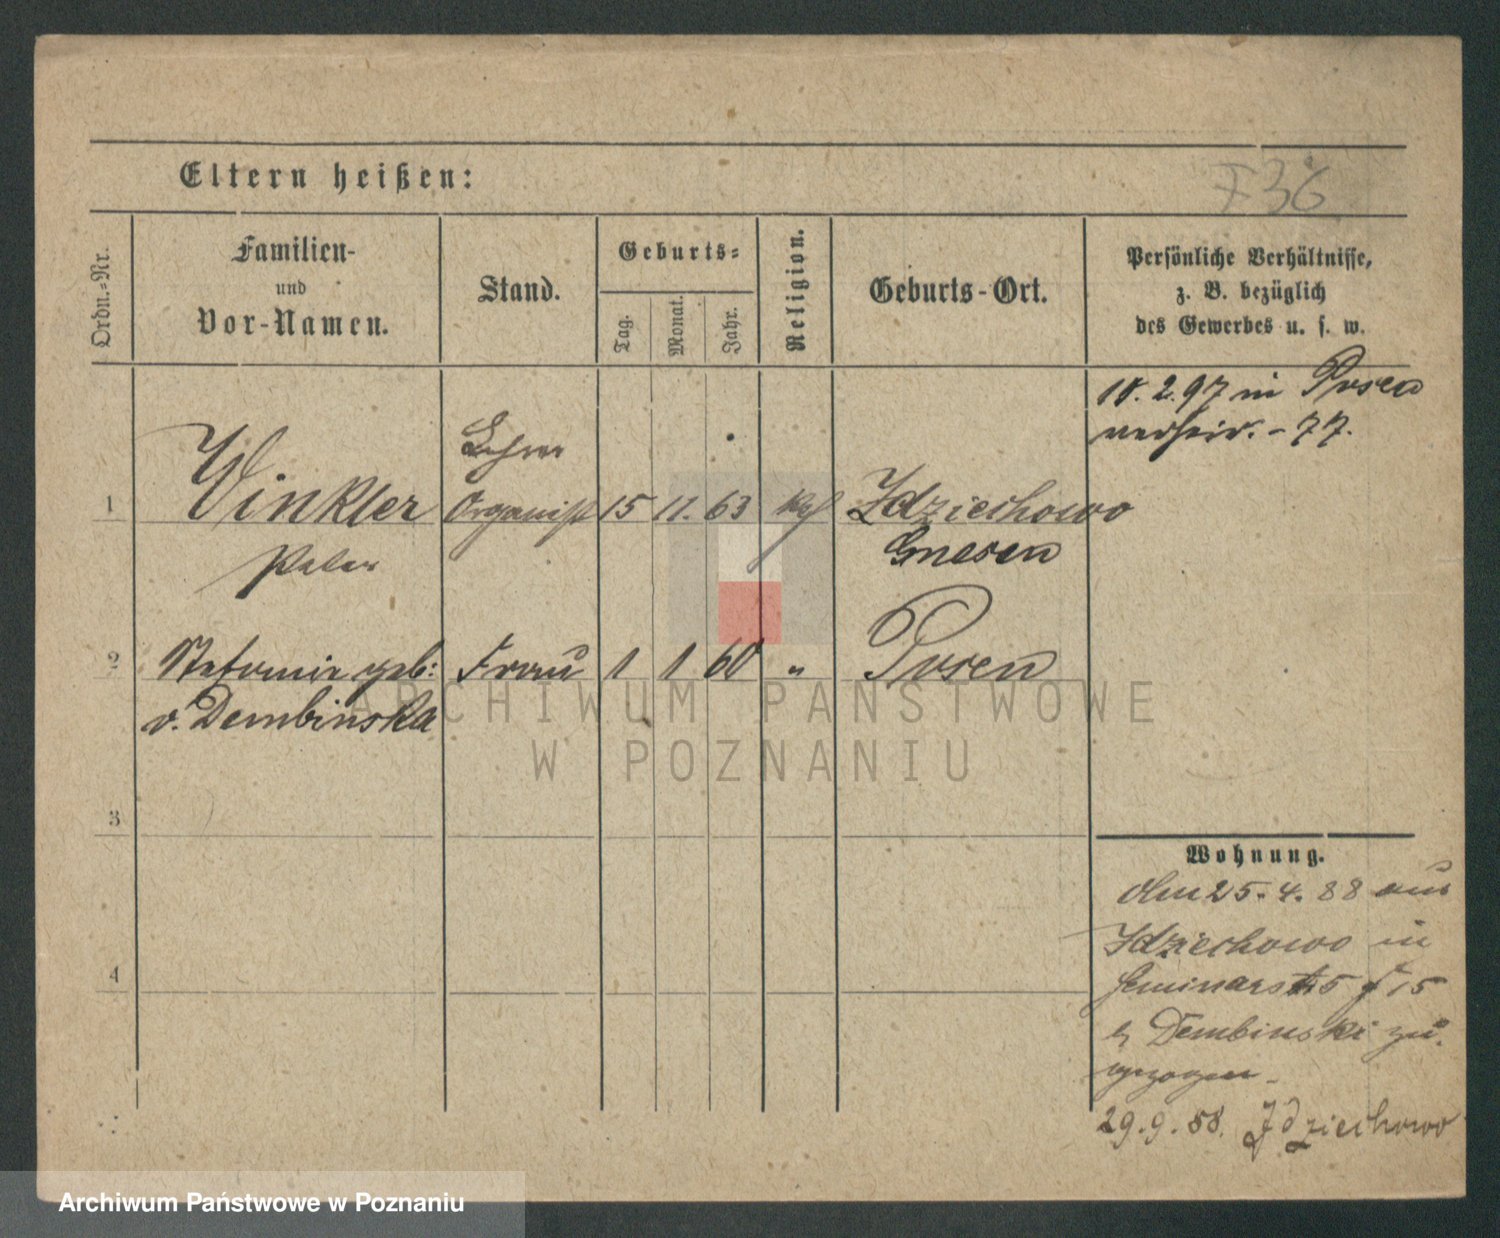 Eltern heißen:
F 36
Ordn.=Nr.
Familien-
und
Vor-Namen.
Stand.
Geburts=
Tag.
Monat.
Jahr.
Religion.
Geburts-Ort.
Persönliche Verhältnisse,
z. B. bezüglich
des Gewerbes u. s. w.
18. 2. 97 in Posen
verheir. - 77.
Lehrer
1 Winkler Organist 15 11. 63 kath Idziechowo
Peter Gnesen
2 geb: Frau 1 1 60 " Posen
v. Dembinska
3
4
Wohnung.
Am 25. 4. 88 aus
Idziechowo in
Seminarstr 5 15
b Dembinski zu
gezogen -
29. 9. 88. Idziechowo
ARCHIWUM PAŃSTWOWE
W POZNANIU
Archiwum Państwowe w Poznaniu